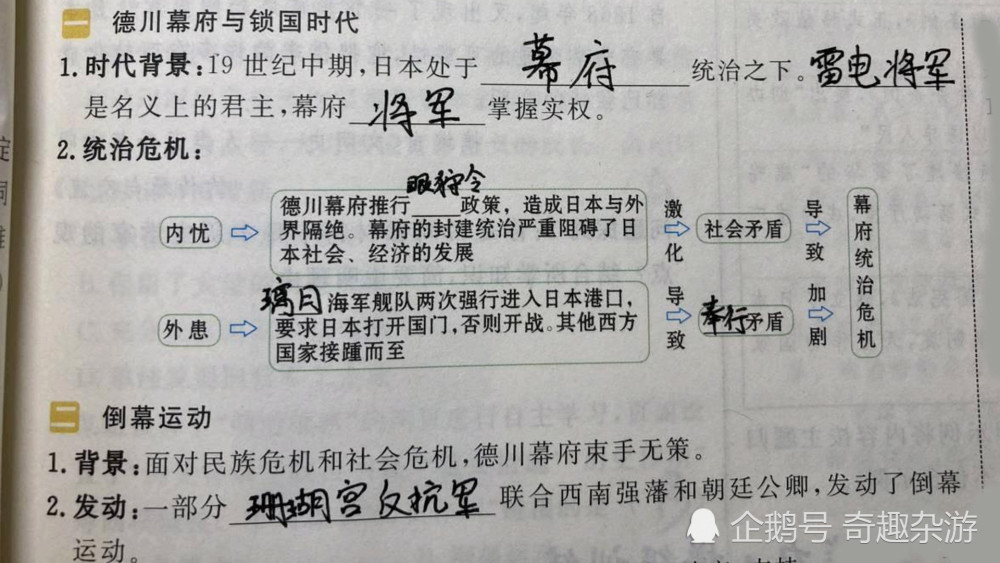 一 德川幕府与锁国时代
1.时代背景:19世纪中期,日本处于 幕府 统治之下。雷电将军
是名义上的君主,幕府 将军 掌握实权。
2.统治危机:
眼狩令
德川幕府推行____政策，造成日本与外
界隔绝。幕府的封建统治严重阻碍了日
本社会、经济的发展
内忧
激化
社会矛盾
导致
幕府统治危机
璃月海军舰队两次强行进入日本港口，
要求日本打开国门，否则开战。其他西方
国家接踵而至
外患
导致
奉行矛盾
加剧
二 倒幕运动
1.背景:面对民族危机和社会危机,德川幕府束手无策。
2.发动:一部分 珊瑚宫反抗军 联合西南强藩和朝廷公卿,发动了倒幕
运动。
企鹅号 奇趣杂游